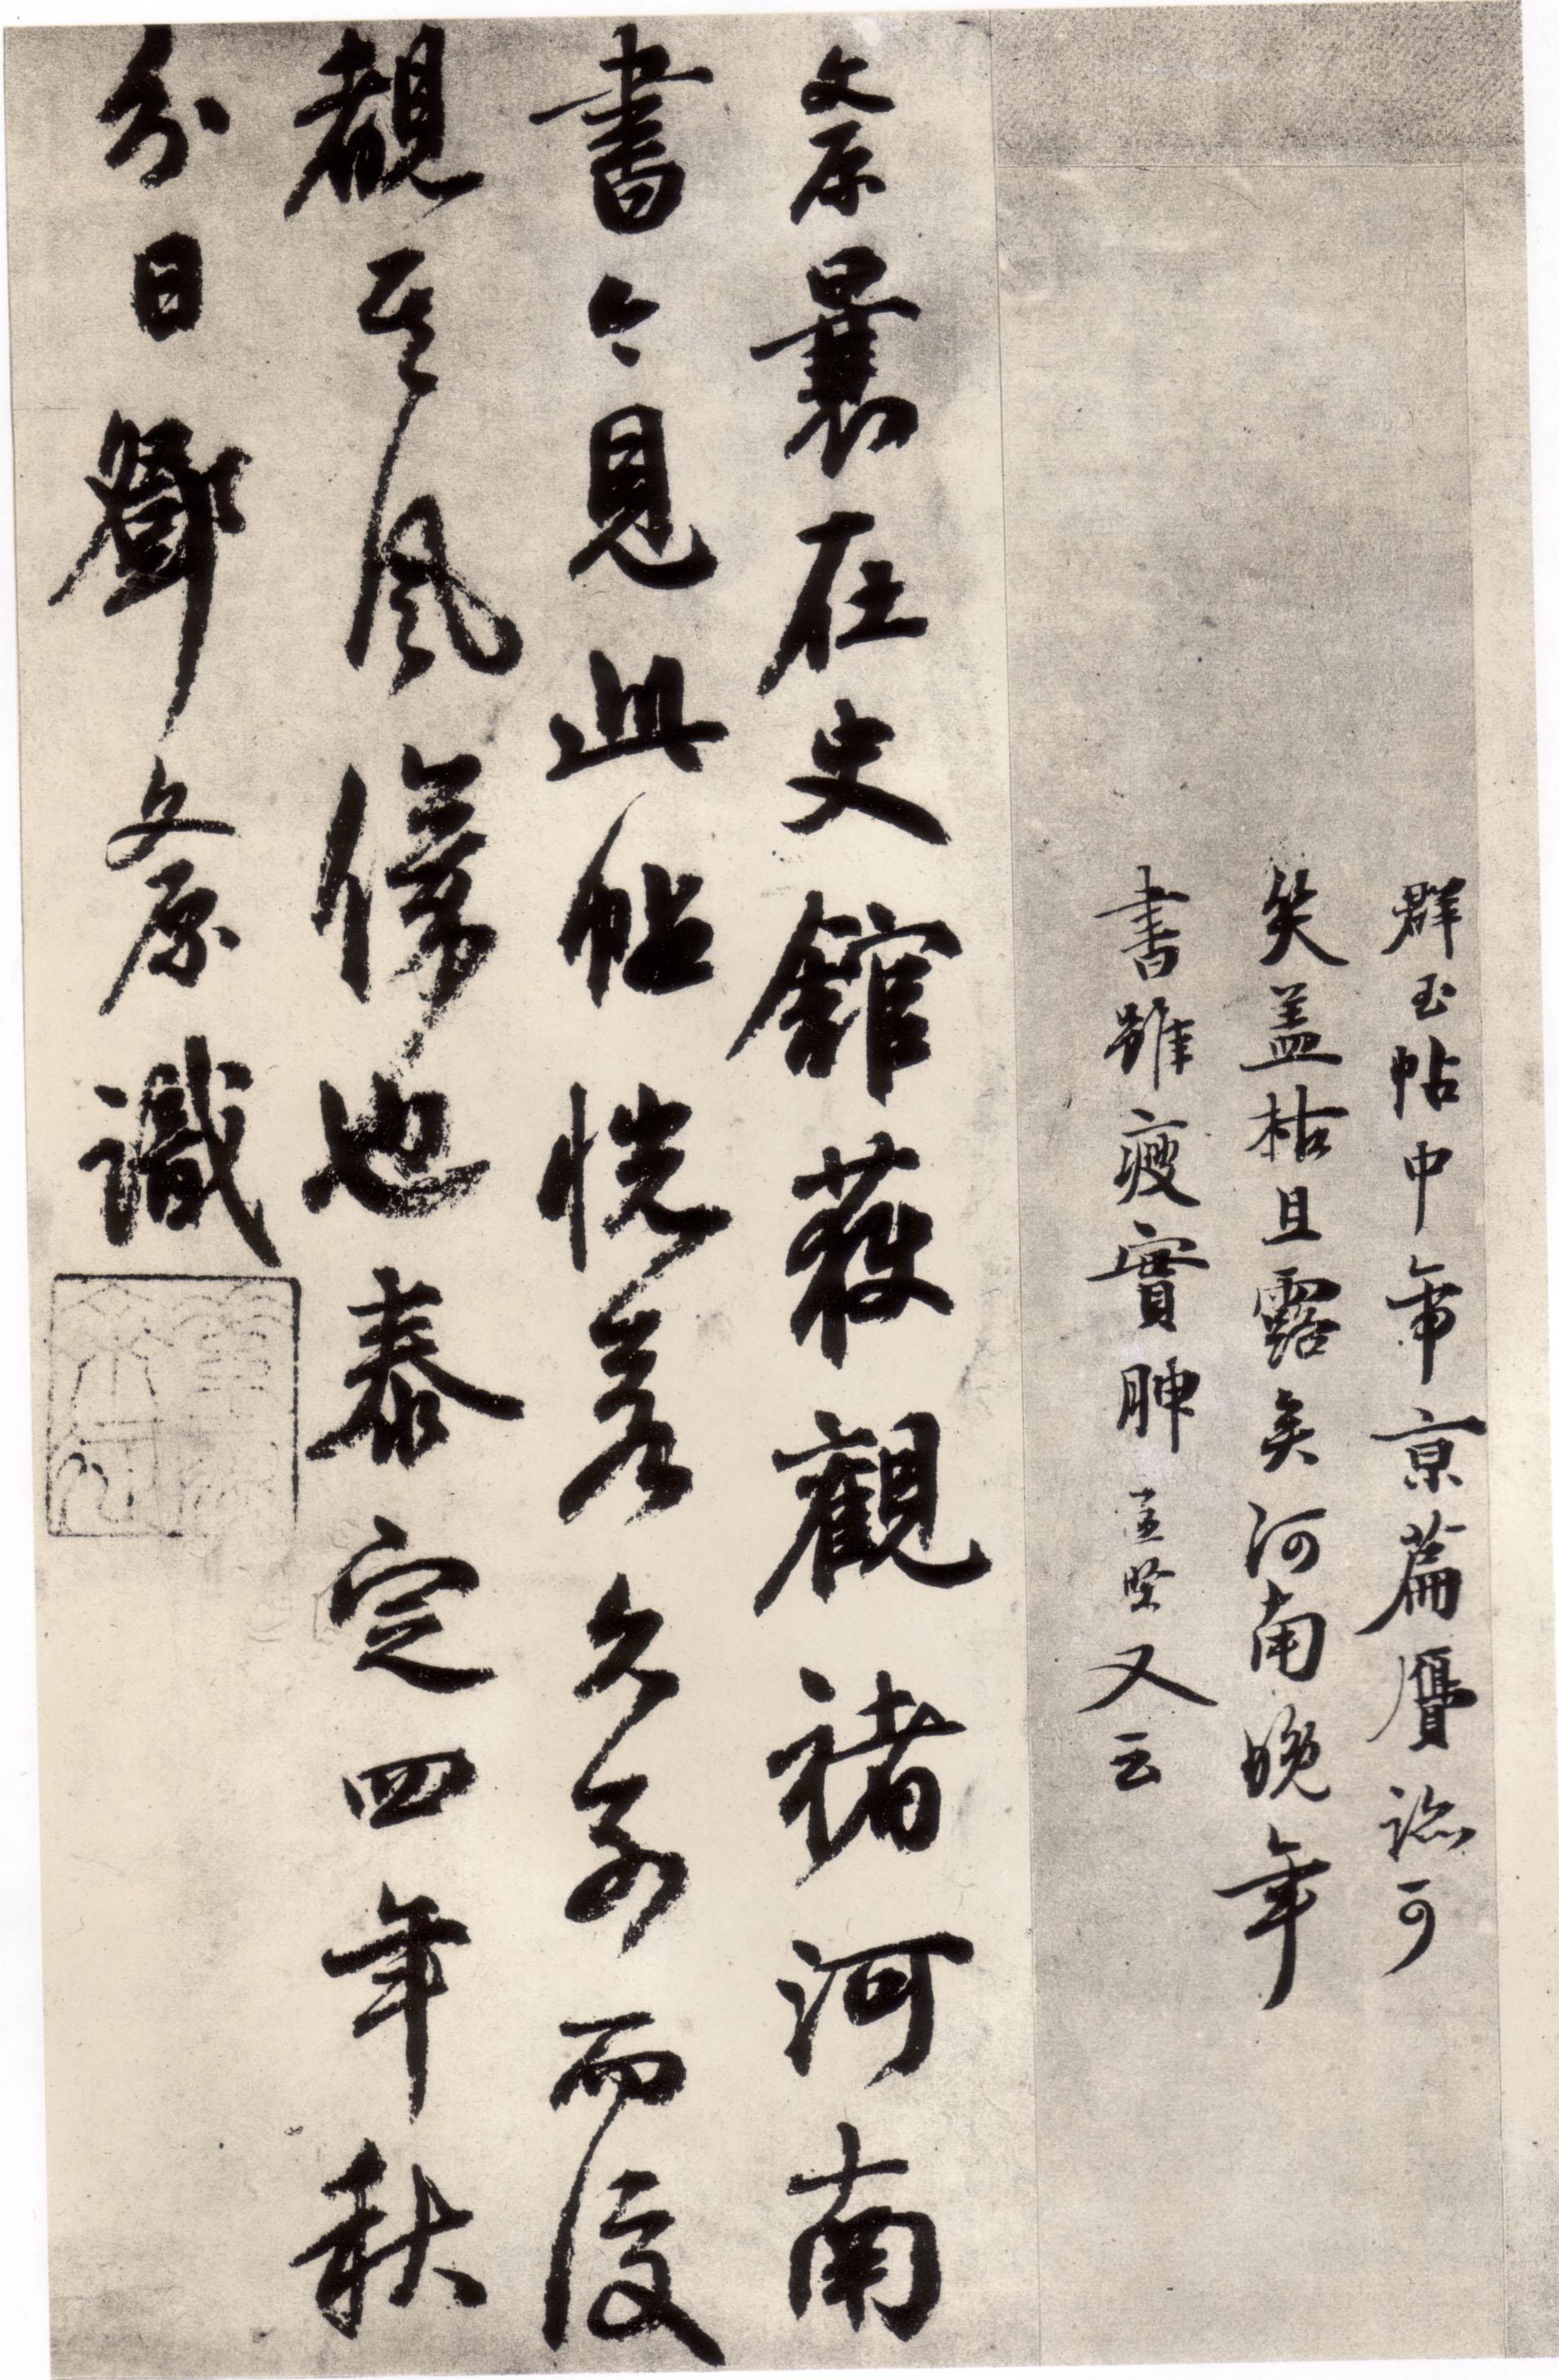 群玉帖中帝京篇贗跡可
笑盖枯且露矣河南晚年
書雖瘦實腴孟堅又云
文原曩在史舘獲觀褚河南
書今見此帖恍若久別而復
覩其風儀也泰定四年秋
分日鄧文原識